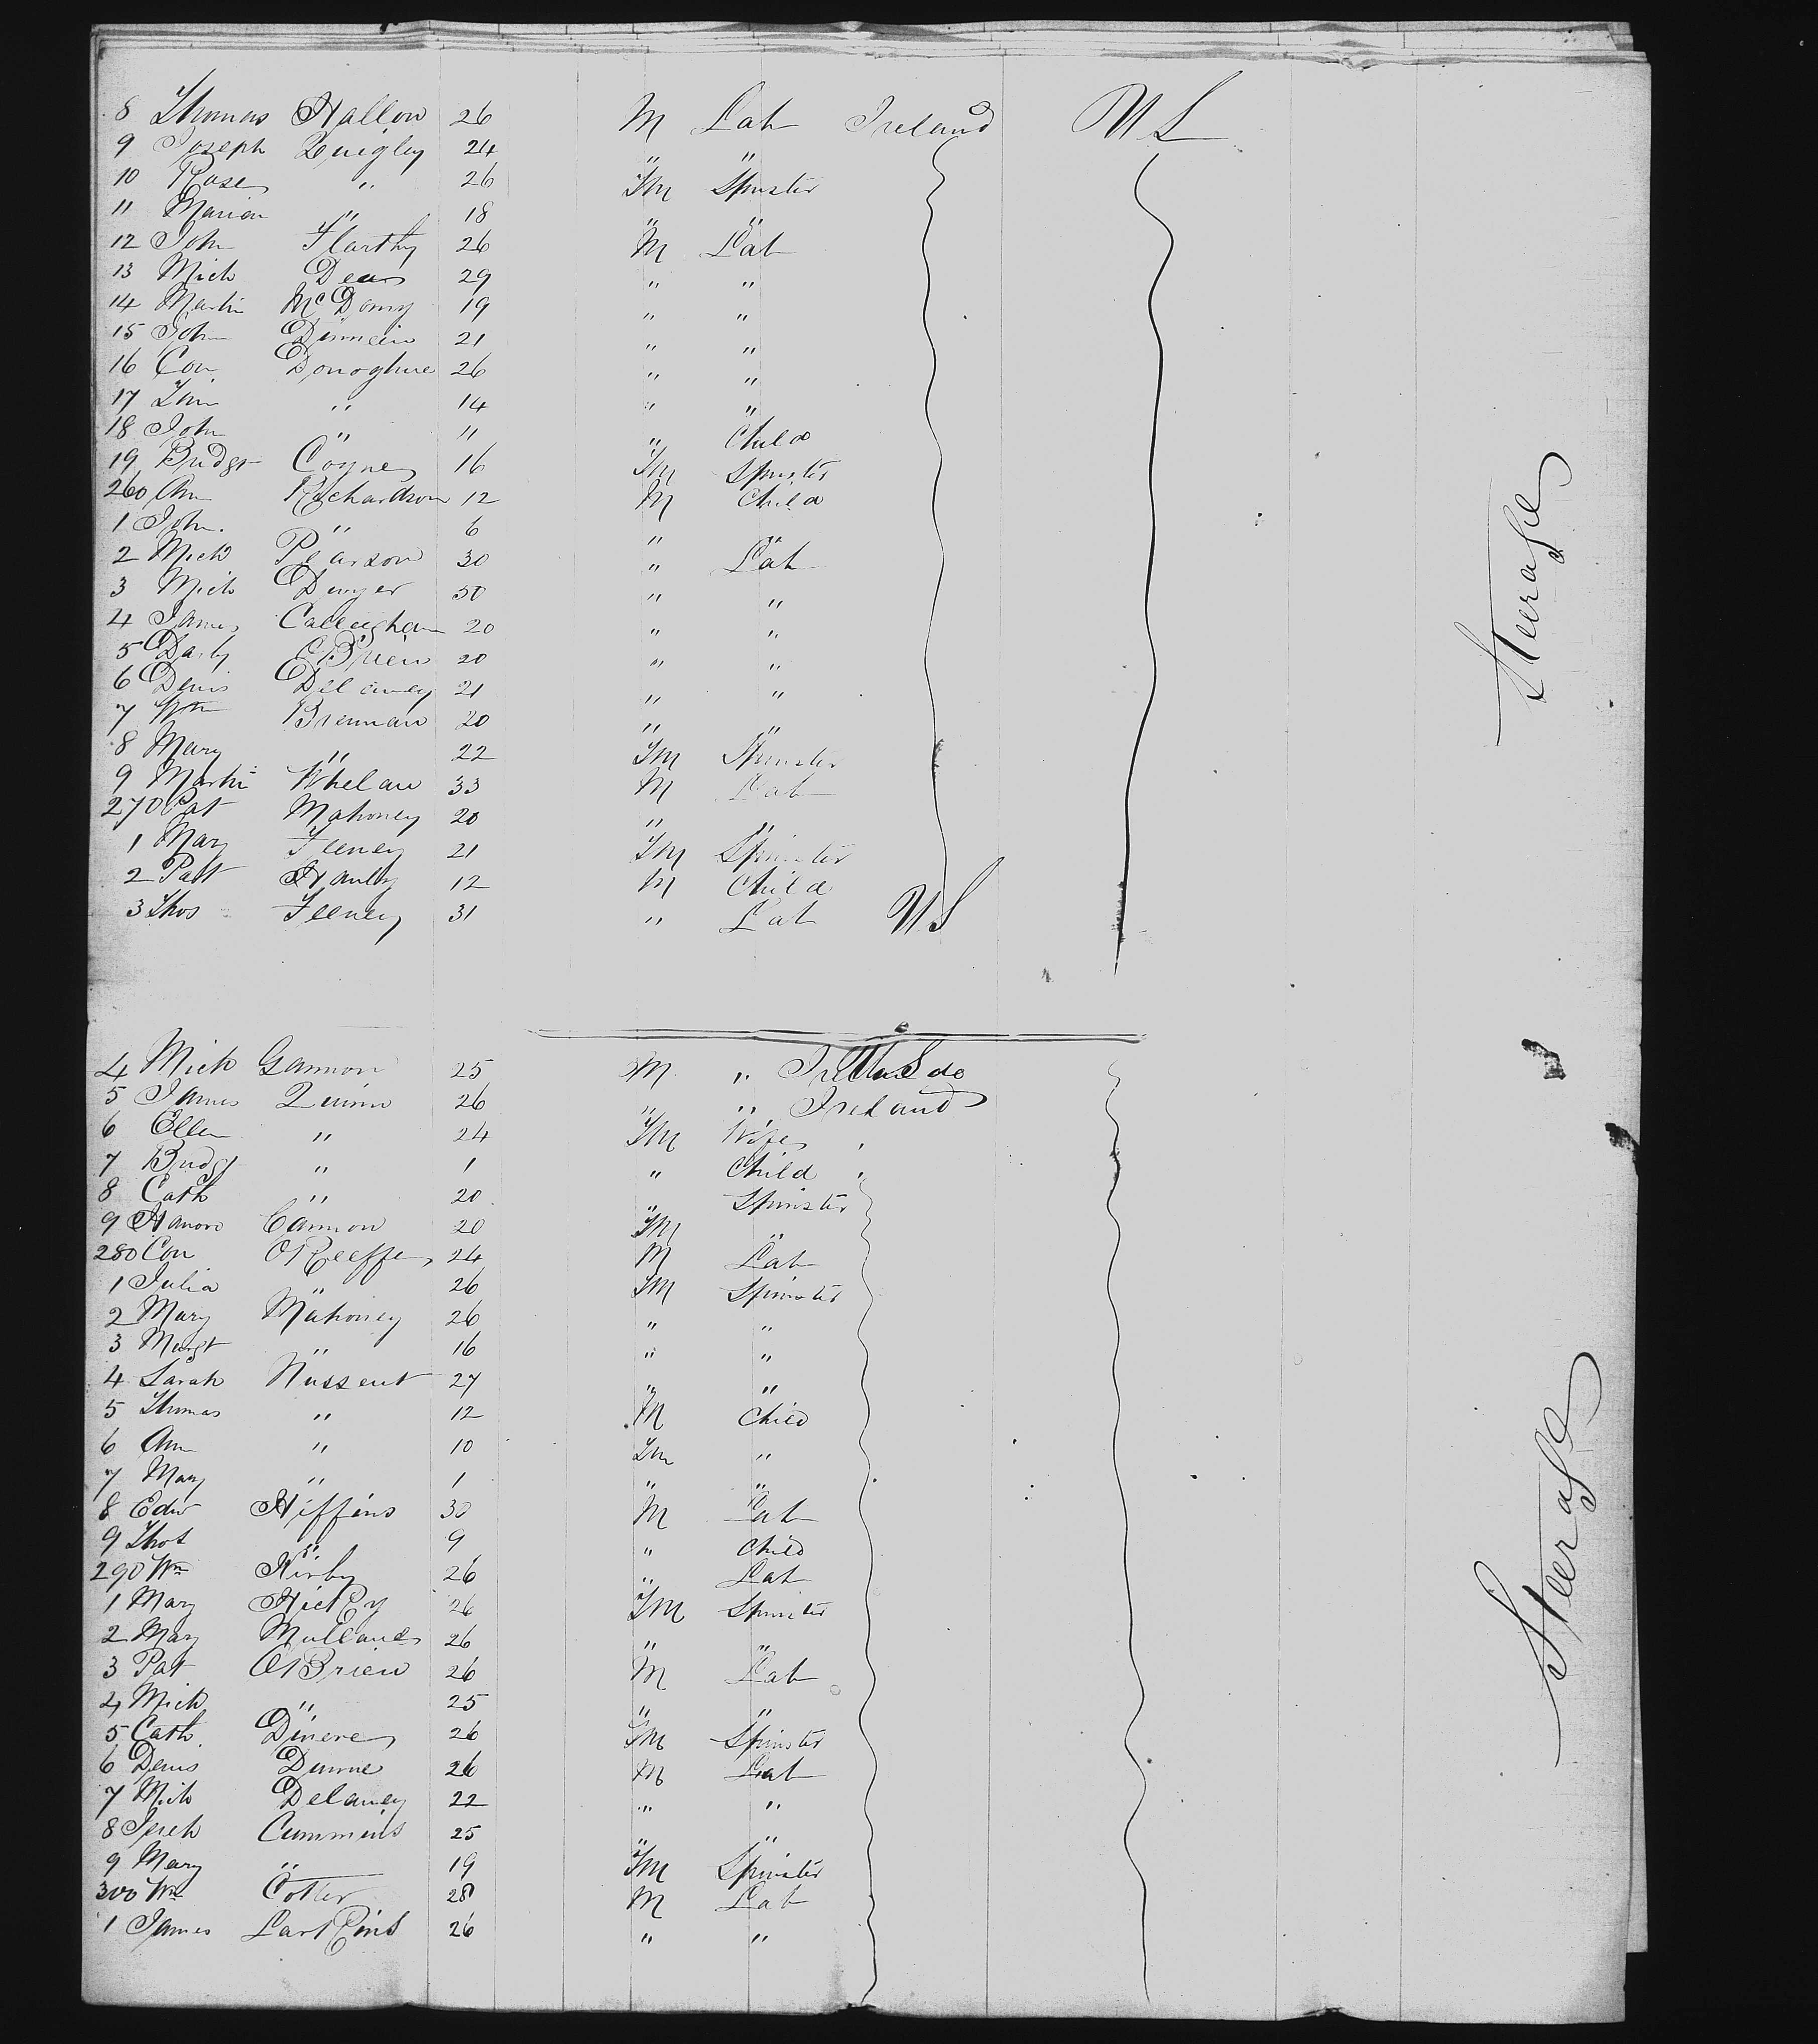 8 Thomas Hallon 26 M Lab Ireland U S
9 Joseph Quigley 24 " "
10 Rose " 26 Fm Spinster
11 Maria " 18 " "
12 John Flarthy 26 M Lab
13 Mich Dean 29 " "
14 Martin McDomy 19 " "
15 John Dinnein 21 " "
16 Con Donoghue 26 " "
17 Tim " 14 " "
18 John " 11 " Child
19 Bridgt Coyne 16 Fm Spinster
260 Ann Richardson 12 M Child
1 John " 6 " "
2 Mich Pearson 30 " Lab
3 Mich Dwyer 30 " "
4 James Calleighan 20 " "
5 Darby OBrien 20 " "
6 Denis Delaney 21 " "
7 Wm Brennan 20 " "
8 Mary " 22 Fm Spinster
9 Martin Whelan 33 M Lab
270 Pat Mahoney 20 " "
1 Mary Feeney 21 Fm Spinster
2 Patt Hanley 12 M Child
3 Thos Feeney 31 " Lab U S
Steerage
4 Mich Gannon 25 M "
5 James Quinn 26 " " Ireland
6 Ellen " 24 Fm Wife
7 Bridgt " 1 " Child
8 Cath " 20 " Spinster
9 Hanora Cannon 20 Fm "
280 Con OKeeffe 24 M Lab
1 Julia " 26 Fm Spinster
2 Mary Mahoney 26 " "
3 Margt " 16 " "
4 Sarah Nussent 27 " "
5 Thomas " 12 M Child
6 Ann " 10 Fm "
7 Mary " 1 " "
8 Edw Hiffins 30 M Lab
9 Thos " 9 " Child
290 Wm Kirby 26 " Lab
1 Mary Hickey 26 Fm Spinster
2 Mary Mullane 26 " "
3 Pat OBrien 26 M Lab
4 Mich " 25 " "
5 Cath Dinene 26 Fm Spinster
6 Denis Dunne 26 M Lab
7 Mich Delaney 22 " "
8 Cummins 25 " "
9 Mary " 19 Fm Spinster
300 Wm Cotter 28 M Lab
1 James Larkins 26 " "
Steerage